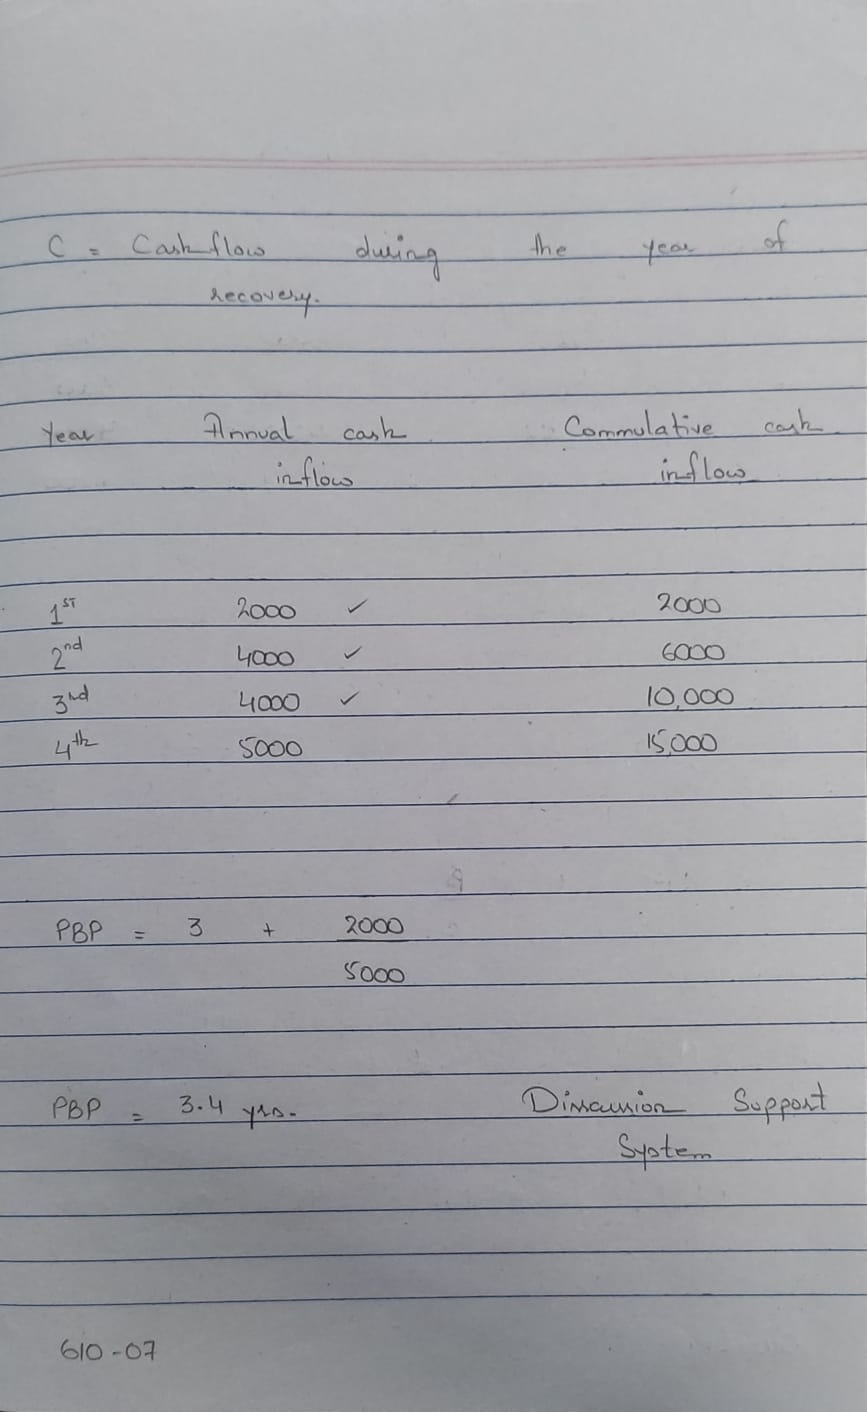 C = Cashflow during the year of
recovery.
Year Annual cash Commulative cash
inflow inflow
1ST 2000 ✓ 2000
2nd 4000 ✓ 6000
3rd 4000 ✓ 10,000
4th 5000 15,000
PBP = 3 + 2000
5000
PBP = 3.4 yrs. Disscussion Support
System
610-07